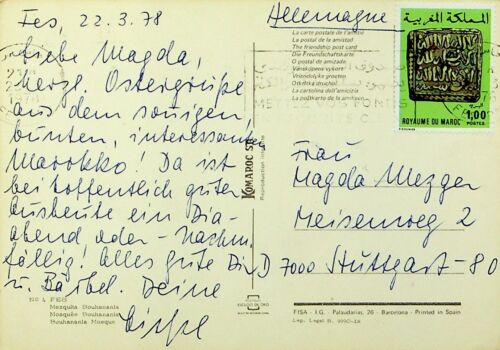 Fes, 22.3.78
Liebe Magda,
herzl. Ostergrüße
aus dem sonnigen,
bunten, interessanten
Marokko! Da ist
bei hoffentlich guter
Ausbeute ein Dia-
abend oder -Nachm.
fällig! Alles gute Dir
u. Bärbel. Deine
Allemagne
المملكة المغربية
1,00
POSTES
ROYAUME DU MAROC
La carte postale de l'amitié
La postal de la amistad
The friendship post card
Die Freundschaftskarte
O postal de amizade
Vänskapens vykort
Vriendelijke groeten
La cartolina dell'amicizia
KOMAROC SA
Reproduction interdite
Frau
Magda Mezger
Meisenweg 2
D 7000 Stuttgart-80
Nº 4 FES
Mezquita Bouhanania
Mosquée Bouhanania
Bouhanania Mosque
ESCUDO DE ORO
FISA - I.G. Palaudarias, 26 - Barcelona - Printed in Spain